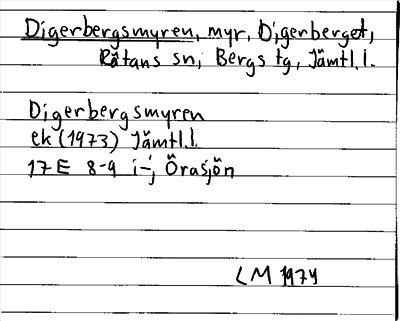 Digerbergsmyren, myr, Digerberget,
Rätans sn; Bergs tg, Jämtl.l.
Digerbergsmyren
ek (1973) Jämtl.l.
17E 8-9 i-j Örasjön
LM 1974